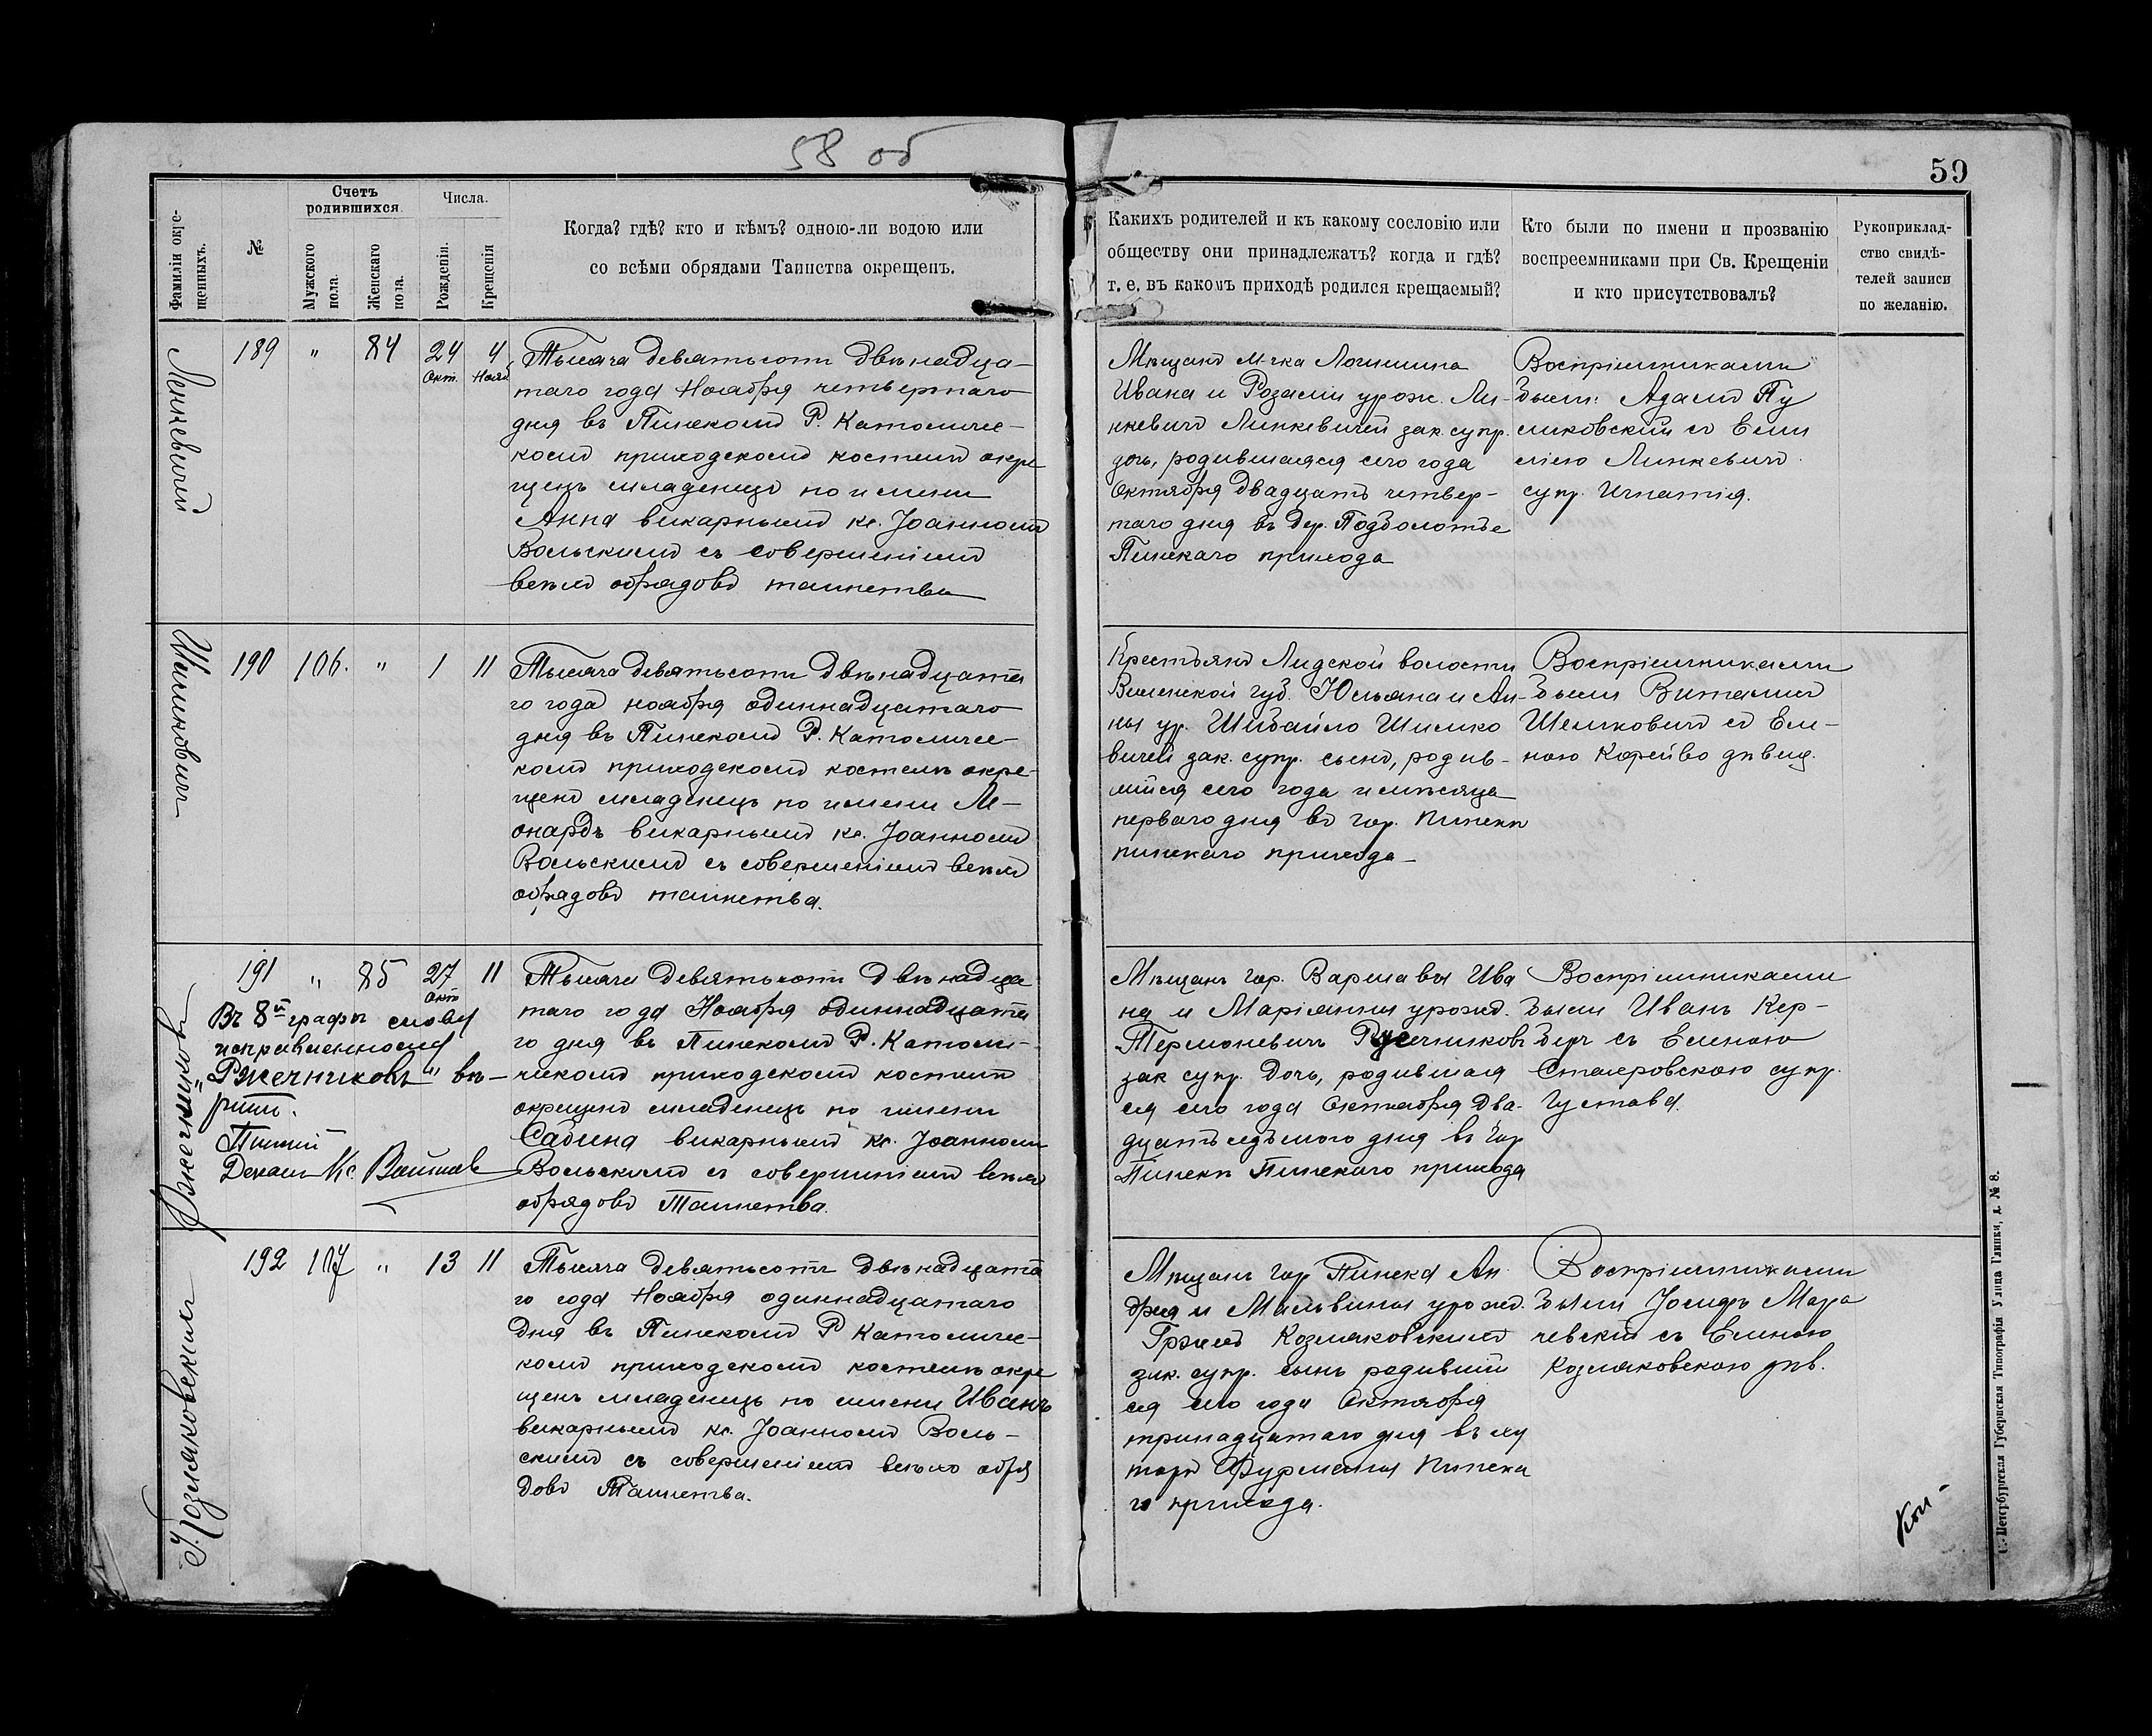 58 об
59
Фамиліи окре-
щенныхъ.
№
Счетъ
родившихся
Мужского
пола.
Женскаго
пола.
Числа.
Рожденія.
Крещенія
Когда? гдѣ? кто и кѣмъ? одною-ли водою или
со всѣми обрядами Таинства окрещенъ.
Какихъ родителей и къ какому сословію или
обществу они принадлежатъ? когда и гдѣ?
т. е. въ какомъ приходѣ родился крещаемый?
Кто были по имени и прозванію
воспреемниками при Св. Крещеніи
и кто присутствовалъ?
Рукоприклад-
ство свидѣ-
телей записи
по желанію.
189 " 84 24 4
Окт. Нояб
Тысяча девятьсотъ двѣнадца-
таго года Ноября четвертаго
дня въ Пинскомъ Р. Католичес-
комъ приходскомъ костелѣ окре
щенъ младенецъ по имени
Анна викарнымъ кс. Іоанномъ
Вольскимъ съ совершеніемъ
всѣхъ обрядовъ таинства
Мѣщанъ м-чка Логишина
Ивана и Розаліи урож. Ли-
нкевичъ Линкевичей зак. супр.
дочь, родившаяся сего года
Октября двадцать четвер-
таго дня въ дер. Подболотье
Пинскаго прихода
Воспріемниками
были: Адамъ Пу
ликовскій съ Еми
ліею Линкевичъ
супр. Игнатія.
Шимковичъ
190 106. " 1 11
Тысяча девятьсотъ двѣнадцата
го года ноября одиннадцатаго
дня въ Пинскомъ Р. Католичес-
комъ приходскомъ костелѣ окре-
щенъ младенецъ по имени Ле-
онардъ викарнымъ кс. Іоанномъ
Вольскимъ съ совершеніемъ всѣхъ
обрядовъ таинства.
Крестьянъ Лидской волости
Виленской губ. Юльяна и Ан-
ны ур. Шибайло Шимко
вичей зак. супр. сынъ, родив-
шійся сего года и мѣсяца
перваго дня въ гор. Пинскѣ
пинскаго прихода
Воспріемниками
были Виталій
Шимковичъ съ Еле-
ною Корейво дѣвиц.
Ржечниковъ
191 " 85 27 11
Окт
Въ 8й графѣ слову
исправленному
"Ржечниковъ" вѣ-
рить.
Пинскій
Деканъ Кс.
Тысяча девятьсотъ двѣнадца
таго года Ноября одиннадцата
го дня въ Пинскомъ Р. Католи-
ческомъ приходскомъ костелѣ
окрещенъ младенецъ по имени
Сабина викарнымъ кс. Іоанномъ
Вольскимъ съ совершеніемъ всѣхъ
обрядовъ Таинства.
Мѣщанъ гор. Варшавы Ива
на и Маріанны урожд.
Термоневичъ Ржечниковъ
зак супр. дочь, родившая
ся сего года Октября два-
дцать седьмого дня въ гор
Пинскѣ Пинскаго прихода
Воспріемниками
были Иванъ Кер-
беръ съ Еленою
Столяровскою супр.
Густава.
Козляковскихъ
192 107 " 13 11
Тысяча девятьсотъ двѣнадцата
го года Ноября одиннадцатаго
дня въ Пинскомъ Р Католичес-
комъ приходскомъ костелѣ окре
щенъ младенецъ по имени Иванъ
викарнымъ кс. Іоанномъ Воль-
скимъ съ совершеніемъ всѣхъ обря
довъ Таинства.
Мѣщанъ гор Пинска Ан
дрея и Мальвины урожд.
Козляковскихъ
зак. супр. сынъ родивші
ся сего года Октября
тринадцатаго дня въ ху
торѣ Фурманы Пинска
го прихода.
Воспріемниками
были Іосифъ Мара
чевскій съ Еленою
Козляковскою дѣв.
С.-Петербургская Губернская Типографія Улица Глинки, д. № 8.